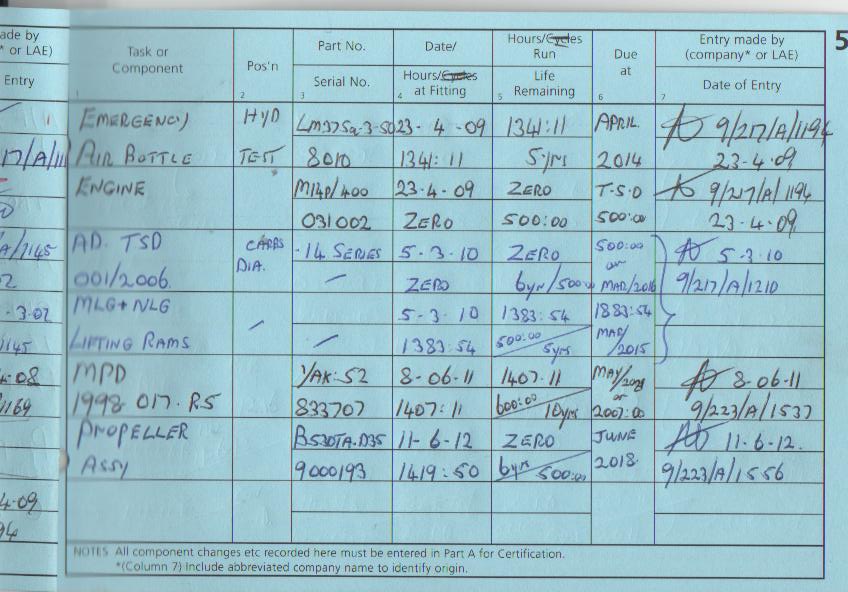 ade by
* or LAE)
Entry
17/A/11
A/1145
02
3.02
1145
4.08
1169
4.09
94
5
Task or Component
Pos'n
Part No.
Serial No.
Date/
Hours/Cycles at Fitting
Hours/Cycles Run
Life Remaining
Due at
Entry made by (company* or LAE)
Date of Entry
1 2 3 4 5 6 7
EMERGENCY HYD LM375a-3-50 23-4-09 1341:11 APRIL 9/217/A/1194
AIR BOTTLE TEST 8010 1341:11 5yrs 2014 23-4-09
ENGINE M14P/400 23-4-09 ZERO T-S-O 9/217/A/1194
031002 ZERO 500:00 500:00 23-4-09
AD. TSD CARBS -14 SERIES 5-3-10 ZERO 500:00 5-3-10
001/2006. DIA. ZERO 6yr/500:00 or MAR/2016 9/217/A/1210
MLG+NLG 5-3-10 1383:54 1883:54
LIFTING RAMS 1383:54 500:00 5yrs MAR/2015
MPD YAK-52 8-06-11 1407:11 8-06-11
1998-017-R5 833707 1407:11 600:00 10yrs or 2007:00 9/223/A/1537
PROPELLER B530TA.D35 11-6-12 ZERO JUNE 11-6-12.
ASSY 9000193 1419:50 6yr 500:00 2018 9/223/A/1556
NOTES All component changes etc recorded here must be entered in Part A for Certification.
*(Column 7) Include abbreviated company name to identify origin.